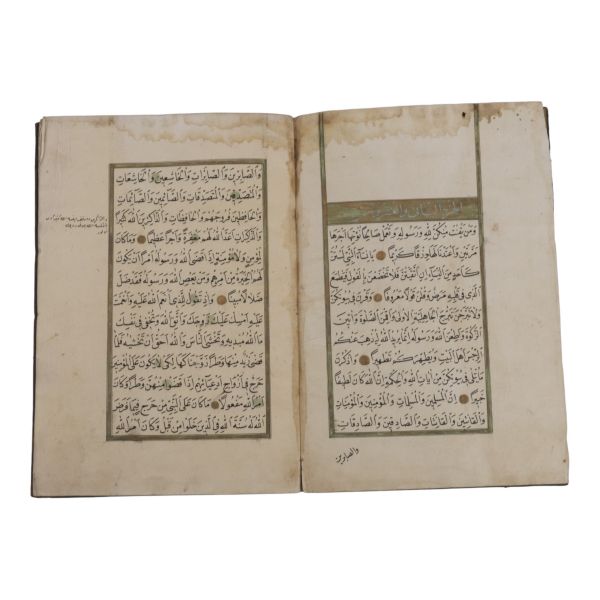 الجزء الثاني والعشرون
وَمَنْ يَقْنُتْ مِنْكُنَّ لِلَّهِ وَرَسُولِهِ وَتَعْمَلْ صَالِحًا نُؤْتِهَا أَجْرَهَا
مَرَّتَيْنِ وَأَعْتَدْنَا لَهَا رِزْقًا كَرِيمًا يَا نِسَاءَ النَّبِيِّ لَسْتُنَّ
كَأَحَدٍ مِنَ النِّسَاءِ إِنِ اتَّقَيْتُنَّ فَلَا تَخْضَعْنَ بِالْقَوْلِ فَيَطْمَعَ
الَّذِي فِي قَلْبِهِ مَرَضٌ وَقُلْنَ قَوْلًا مَعْرُوفًا وَقَرْنَ فِي بُيُوتِكُنَّ
وَلَا تَبَرَّجْنَ تَبَرُّجَ الْجَاهِلِيَّةِ الْأُولَى وَأَقِمْنَ الصَّلٰوةَ وَآتِينَ
الزَّكٰوةَ وَأَطِعْنَ اللَّهَ وَرَسُولَهُ إِنَّمَا يُرِيدُ اللَّهُ لِيُذْهِبَ عَنْكُمُ
الرِّجْسَ أَهْلَ الْبَيْتِ وَيُطَهِّرَكُمْ تَطْهِيرًا وَاذْكُرْنَ
مَا يُتْلَى فِي بُيُوتِكُنَّ مِنْ آيَاتِ اللَّهِ وَالْحِكْمَةِ إِنَّ اللَّهَ كَانَ لَطِيفًا
خَبِيرًا إِنَّ الْمُسْلِمِينَ وَالْمُسْلِمَاتِ وَالْمُؤْمِنِينَ وَالْمُؤْمِنَاتِ
وَالْقَانِتِينَ وَالْقَانِتَاتِ وَالصَّادِقِينَ وَالصَّادِقَاتِ
والصابرين
وَالصَّابِرِينَ وَالصَّابِرَاتِ وَالْخَاشِعِينَ وَالْخَاشِعَاتِ
وَالْمُتَصَدِّقِينَ وَالْمُتَصَدِّقَاتِ وَالصَّائِمِينَ وَالصَّائِمَاتِ
وَالْحَافِظِينَ فُرُوجَهُمْ وَالْحَافِظَاتِ وَالذَّاكِرِينَ اللَّهَ كَثِيرًا
وَالذَّاكِرَاتِ أَعَدَّ اللَّهُ لَهُمْ مَغْفِرَةً وَأَجْرًا عَظِيمًا وَمَا كَانَ
لِمُؤْمِنٍ وَلَا مُؤْمِنَةٍ إِذَا قَضَى اللَّهُ وَرَسُولُهُ أَمْرًا أَنْ يَكُونَ
لَهُمُ الْخِيَرَةُ مِنْ أَمْرِهِمْ وَمَنْ يَعْصِ اللَّهَ وَرَسُولَهُ فَقَدْ ضَلَّ
ضَلَالًا مُبِينًا وَإِذْ تَقُولُ لِلَّذِي أَنْعَمَ اللَّهُ عَلَيْهِ وَأَنْعَمْتَ
عَلَيْهِ أَمْسِكْ عَلَيْكَ زَوْجَكَ وَاتَّقِ اللَّهَ وَتُخْفِي فِي نَفْسِكَ
مَا اللَّهُ مُبْدِيهِ وَتَخْشَى النَّاسَ وَاللَّهُ أَحَقُّ أَنْ تَخْشٰيهُ فَلَمَّا
قَضَى زَيْدٌ مِنْهَا وَطَرًا زَوَّجْنَاكَهَا لِكَيْ لَا يَكُونَ عَلَى الْمُؤْمِنِينَ
حَرَجٌ فِي أَزْوَاجِ أَدْعِيَائِهِمْ إِذَا قَضَوْا مِنْهُنَّ وَطَرًا وَكَانَ
أَمْرُ اللَّهِ مَفْعُولًا مَا كَانَ عَلَى النَّبِيِّ مِنْ حَرَجٍ فِيمَا فَرَضَ
اللَّهُ لَهُ سُنَّةَ اللَّهِ فِي الَّذِينَ خَلَوْا مِنْ قَبْلُ وَكَانَ أَمْرُ اللَّهِ